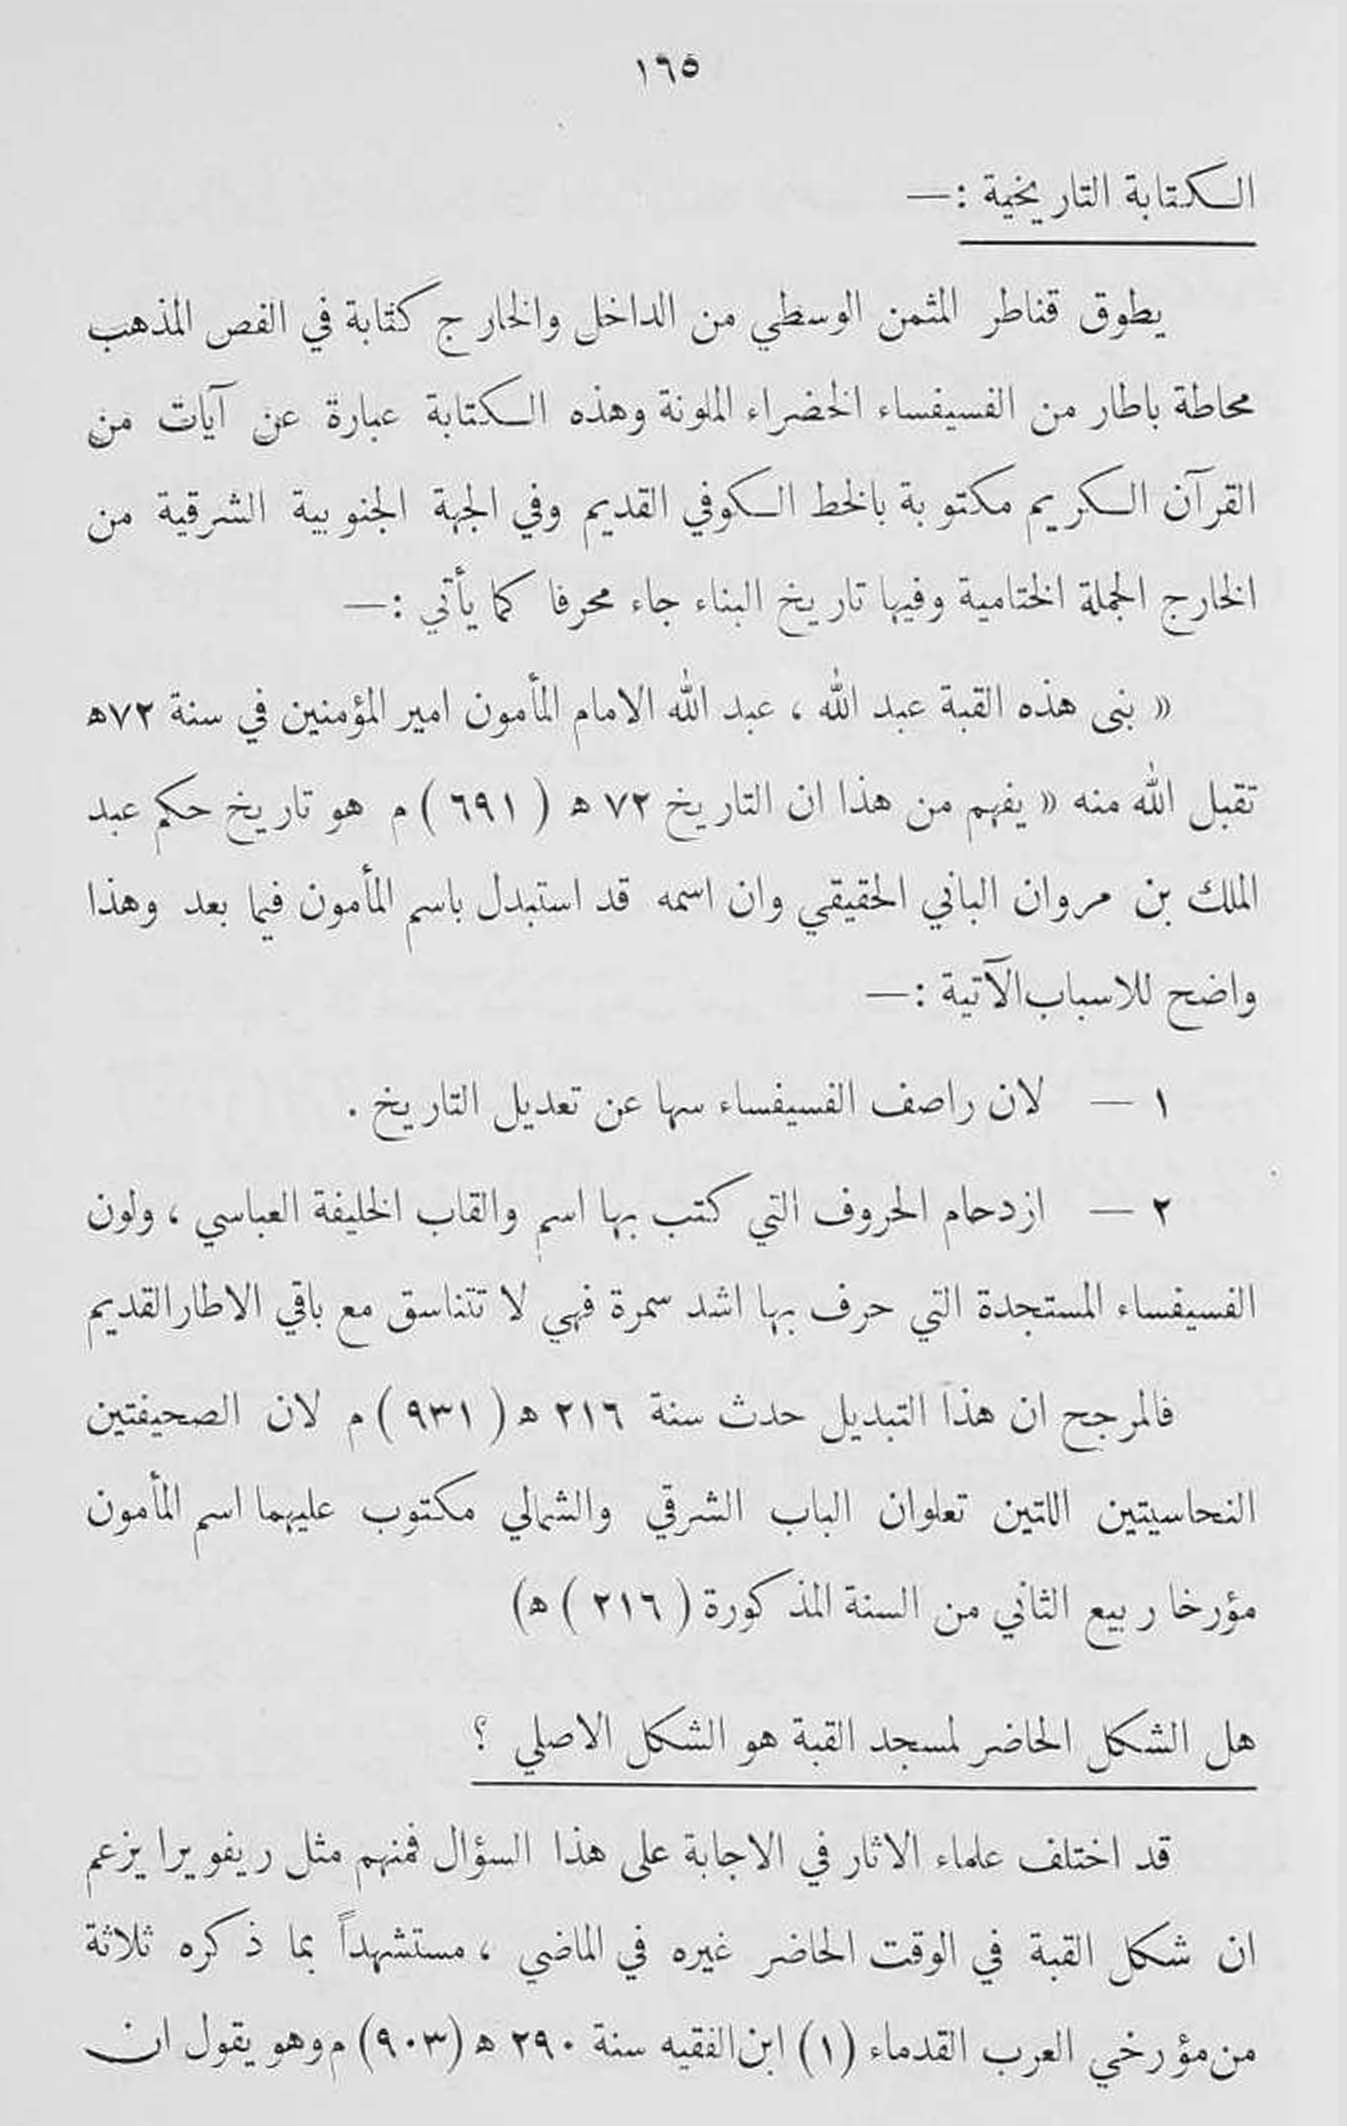 ١٦٥
الكتابة التاريخية :—
يطوق قناطر المثمن الوسطي من الداخل والخارج كتابة في الفص المذهب
محاطة باطار من الفسيفساء الخضراء الملونة وهذه الكتابة عبارة عن آيات من
القرآن الكريم مكتوبة بالخط الكوفي القديم وفي الجهة الجنوبية الشرقية من
الخارج الجملة الختامية وفيها تاريخ البناء جاء محرفا كما يأتي :—
« بنى هذه القبة عبد الله ، عبد الله الامام المأمون امير المؤمنين في سنة ٧٢ﻫ
تقبل الله منه « يفهم من هذا ان التاريخ ٧٢ ﻫ ( ٦٩١ ) م هو تاريخ حكم عبد
الملك بن مروان الباني الحقيقي وان اسمه قد استبدل باسم المأمون فيما بعد وهذا
واضح للاسباب الآتية :—
١ — لان راصف الفسيفساء سها عن تعديل التاريخ .
٢ — ازدحام الحروف التي كتب بها اسم والقاب الخليفة العباسي ، ولون
الفسيفساء المستجدة التي حرف بها اشد سمرة فهي لا تتناسق مع باقي الاطار القديم
فالمرجح ان هذا التبديل حدث سنة ٢١٦ ﻫ ( ٩٣١ ) م لان الصحيفتين
النحاسيتين اللتين تعلوان الباب الشرقي والشمالي مكتوب عليهما اسم المأمون
مؤرخا ربيع الثاني من السنة المذكورة ( ٢١٦ ) ﻫ)
هل الشكل الحاضر لمسجد القبة هو الشكل الاصلي ؟
قد اختلف علماء الاثار في الاجابة على هذا السؤال فمنهم مثل ريفويرا يزعم
ان شكل القبة في الوقت الحاضر غيره في الماضي ، مستشهداً بما ذكره ثلاثة
من مؤرخي العرب القدماء (١) ابن الفقيه سنة ٢٩٠ ﻫ (٩٠٣) م وهو يقول ان